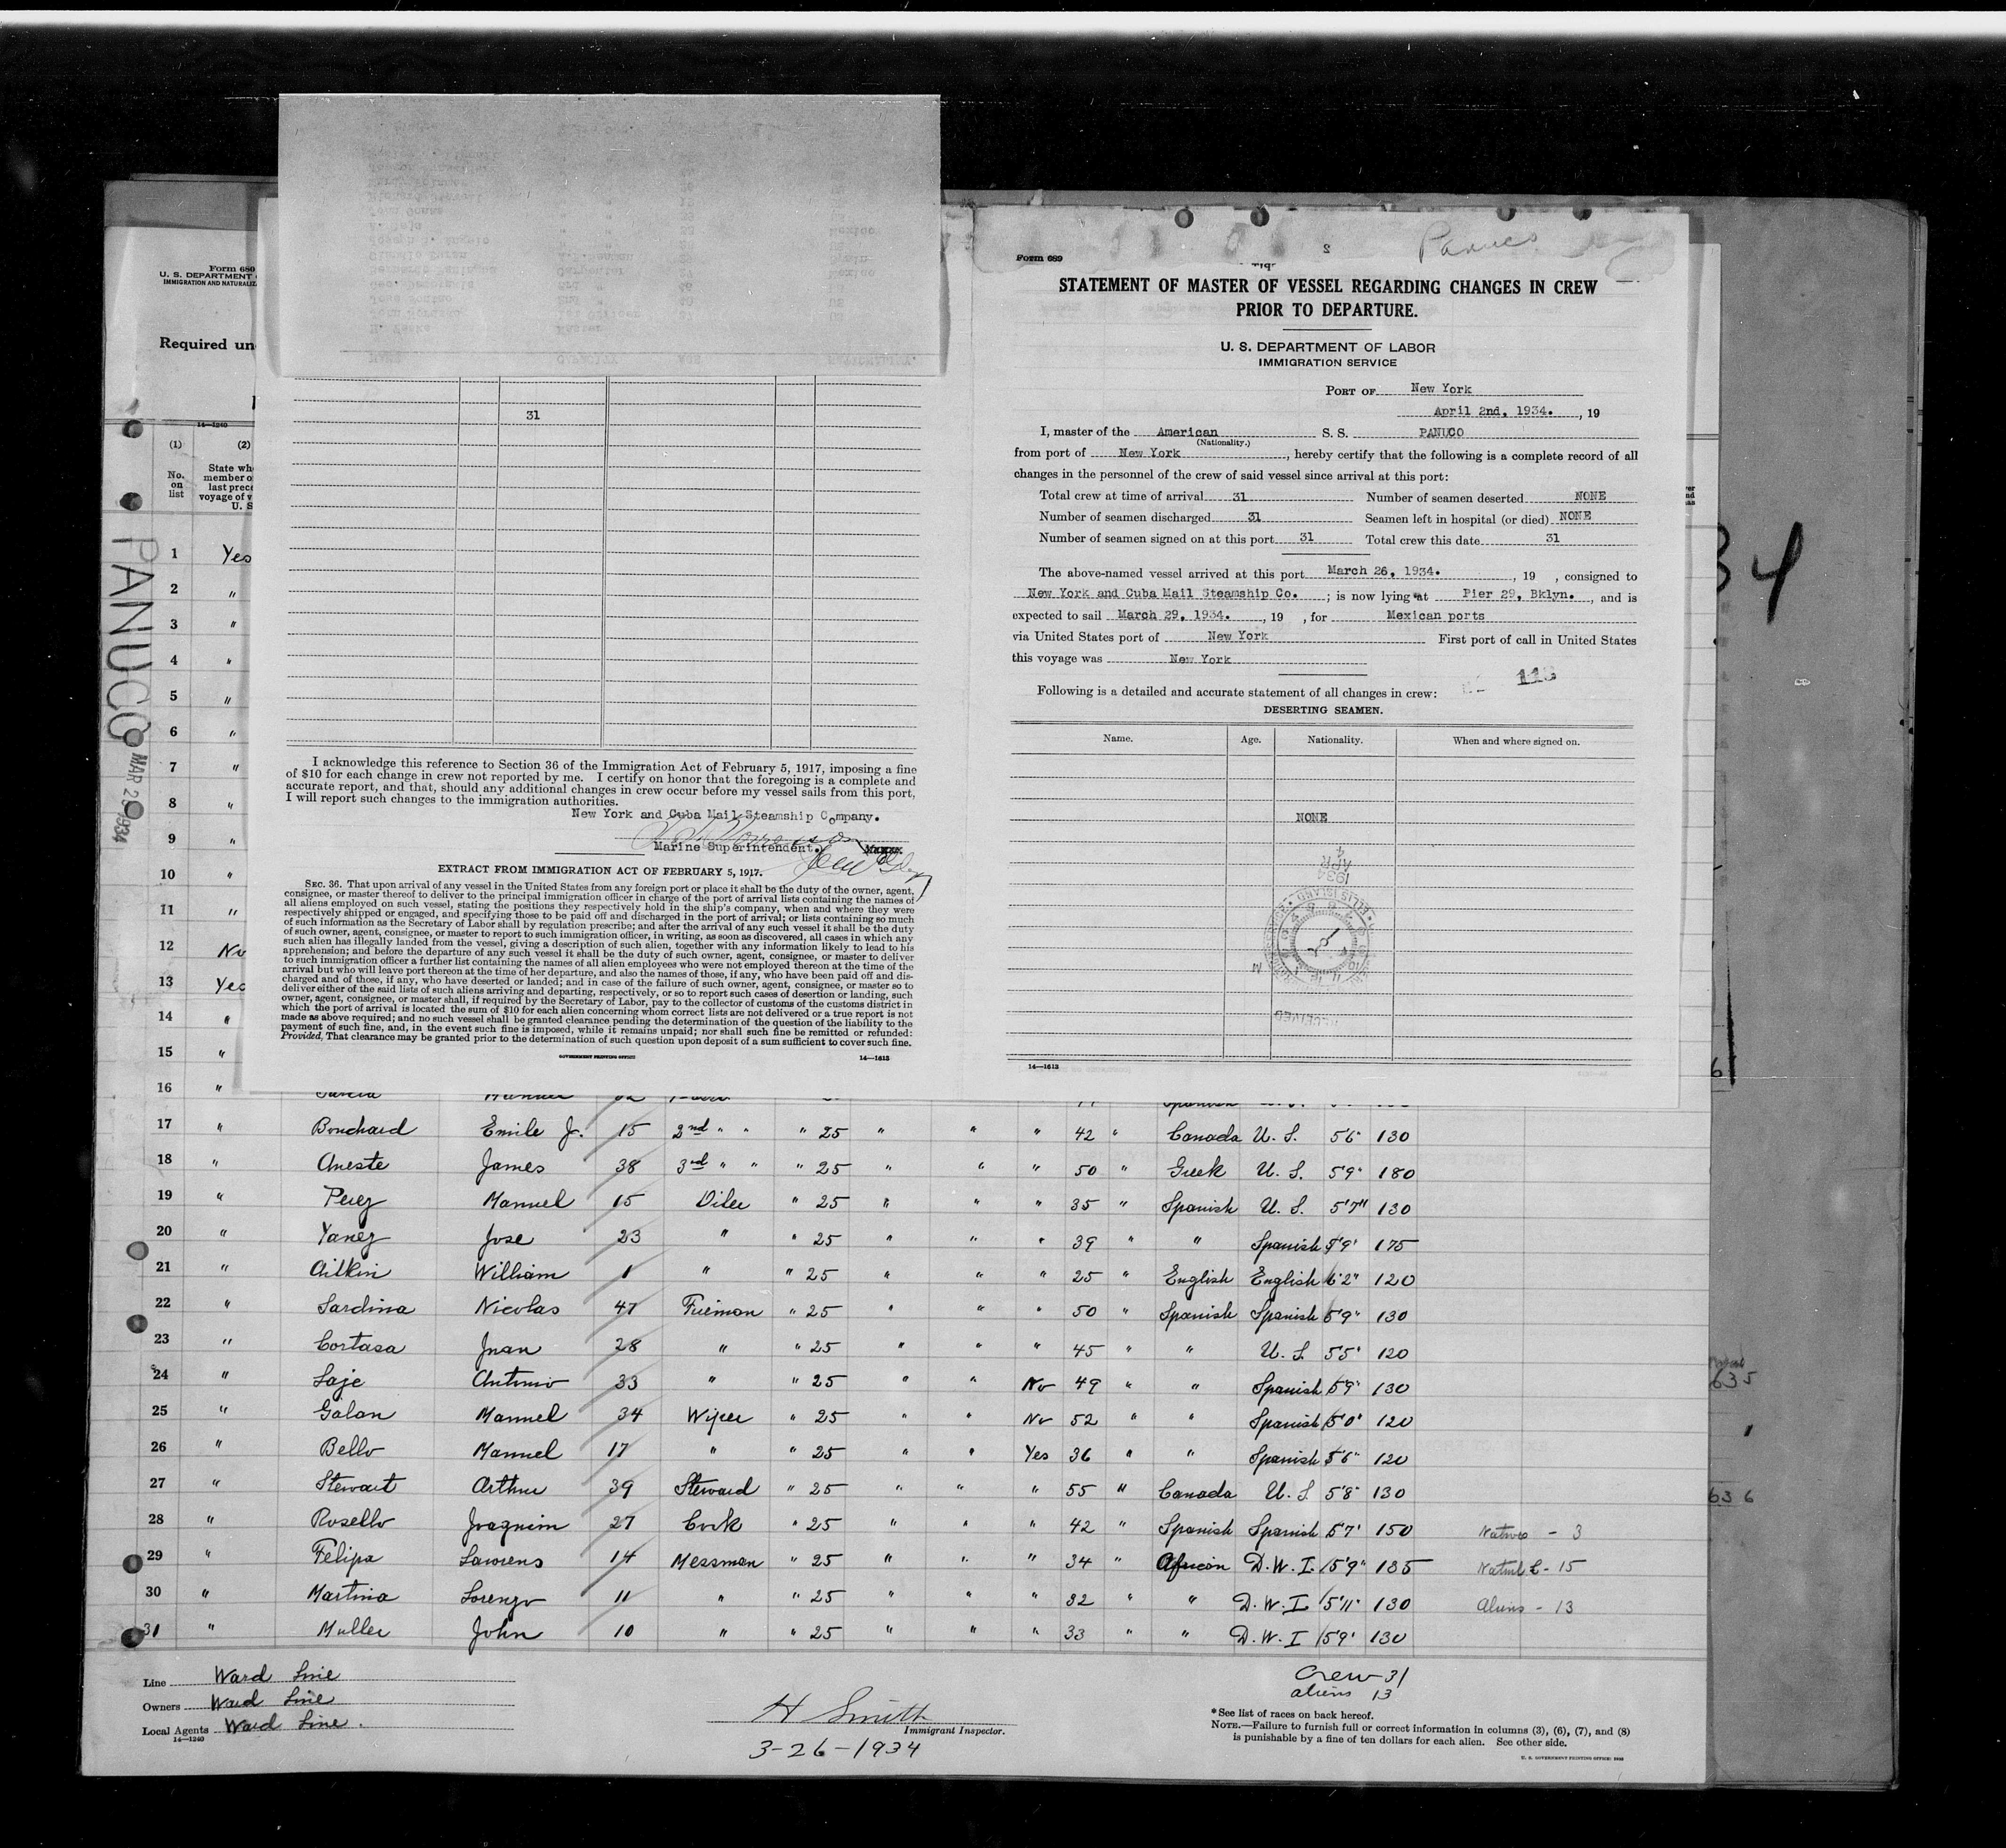 Form 680
U. S. DEPARTMENT
IMMIGRATION AND NATURALIZ
Required un
14—1240
(1) (2)
No. on list
State wh
member o
last prece
voyage of v
U. S
PANUCO MAR 26 1934
1 Yes
2 "
3 "
4 "
5 "
6 "
7 "
8 "
9 "
10 "
11 "
12 No
13 Yes
14 "
15 "
16 "
31
I acknowledge this reference to Section 36 of the Immigration Act of February 5, 1917, imposing a fine
of $10 for each change in crew not reported by me. I certify on honor that the foregoing is a complete and
accurate report, and that, should any additional changes in crew occur before my vessel sails from this port,
I will report such changes to the immigration authorities.
New York and Cuba Mail Steamship Company.
Marine Superintendent.
EXTRACT FROM IMMIGRATION ACT OF FEBRUARY 5, 1917.
SEC. 36. That upon arrival of any vessel in the United States from any foreign port or place it shall be the duty of the owner, agent,
consignee, or master thereof to deliver to the principal immigration officer in charge of the port of arrival lists containing the names of
all aliens employed on such vessel, stating the positions they respectively hold in the ship's company, when and where they were
respectively shipped or engaged, and specifying those to be paid off and discharged in the port of arrival; or lists containing so much
of such information as the Secretary of Labor shall by regulation prescribe; and after the arrival of any such vessel it shall be the duty
of such owner, agent, consignee, or master to report to such immigration officer, in writing, as soon as discovered, all cases in which any
such alien has illegally landed from the vessel, giving a description of such alien, together with any information likely to lead to his
apprehension; and before the departure of any such vessel it shall be the duty of such owner, agent, consignee, or master to deliver
to such immigration officer a further list containing the names of all alien employees who were not employed thereon at the time of the
arrival but who will leave port thereon at the time of her departure, and also the names of those, if any, who have been paid off and dis-
charged and of those, if any, who have deserted or landed; and in case of the failure of such owner, agent, consignee, or master so to
deliver either of the said lists of such aliens arriving and departing, respectively, or so to report such cases of desertion or landing, such
owner, agent, consignee, or master shall, if required by the Secretary of Labor, pay to the collector of customs of the customs district in
which the port of arrival is located the sum of $10 for each alien concerning whom correct lists are not delivered or a true report is not
made as above required; and no such vessel shall be granted clearance pending the determination of the question of the liability to the
payment of such fine, and, in the event such fine is imposed, while it remains unpaid; nor shall such fine be remitted or refunded:
Provided, That clearance may be granted prior to the determination of such question upon deposit of a sum sufficient to cover such fine.
GOVERNMENT PRINTING OFFICE 14—1613
Panuco
Form 689
STATEMENT OF MASTER OF VESSEL REGARDING CHANGES IN CREW
PRIOR TO DEPARTURE.
U. S. DEPARTMENT OF LABOR
IMMIGRATION SERVICE
PORT OF New York
April 2nd, 1934. , 19
I, master of the American S. S. PANUCO
(Nationality.)
from port of New York , hereby certify that the following is a complete record of all
changes in the personnel of the crew of said vessel since arrival at this port:
Total crew at time of arrival 31 Number of seamen deserted NONE
Number of seamen discharged 31 Seamen left in hospital (or died) NONE
Number of seamen signed on at this port 31 Total crew this date 31
The above-named vessel arrived at this port March 26, 1934. , 19 , consigned to
New York and Cuba Mail Steamship Co. ; is now lying at Pier 29, Bklyn. , and is
expected to sail March 29, 1934. , 19 , for Mexican ports
via United States port of New York First port of call in United States
this voyage was New York
Following is a detailed and accurate statement of all changes in crew:
DESERTING SEAMEN.
Name. Age. Nationality. When and where signed on.
NONE
14—1613
34
17 " Bouchard Emile Jr. 15 2nd " " " 25 " " " 42 " Canada U. S. 5'6" 130
18 " Aneste James 38 3rd " " " 25 " " " 50 " Greek U. S. 5'9" 180
19 " Perez Manuel 15 Oiler " 25 " " " 35 " Spanish U. S. 5'7" 130
20 " Yanez Jose 23 " " 25 " " " 39 " " Spanish 5'9" 175
21 " Aitkin William 1 " " 25 " " " 25 " English English 6'2" 120
22 " Sardina Nicolas 47 Fireman " 25 " " " 50 " Spanish Spanish 5'9" 130
23 " Cortasa Juan 28 " " 25 " " " 45 " " U. S. 5'5" 120
24 " Laje Antonio 33 " " 25 " " No 49 " " Spanish 5'9" 130
25 " Galan Manuel 34 Wiper " 25 " " No 52 " " Spanish 5'0" 120
26 " Bello Manuel 17 " " 25 " " Yes 36 " " Spanish 5'6" 120
27 " Stewart Arthur 39 Steward " 25 " " " 55 " Canada U. S 5'8" 130
28 " Rosello Joaquim 27 Cook " 25 " " " 42 " Spanish Spanish 5'7" 150 Natives - 3
29 " Felipa Lawrens 14 Messman " 25 " " " 34 " African D. W. I. 5'9" 185 Natul C - 15
30 " Martina Lorenzo 11 " " 25 " " " 32 " " D. W. I. 5'11" 130 Aliens - 13
31 " Muller John 10 " " 25 " " " 33 " " D. W. I 5'9" 130
Line Ward Line
Owners Ward Line
Local Agents Ward Line.
14—1240
H Smith
Immigrant Inspector.
3-26-1934
Crew 31
aliens 13
*See list of races on back hereof.
NOTE.—Failure to furnish full or correct information in columns (3), (6), (7), and (8)
is punishable by a fine of ten dollars for each alien. See other side.
635
636